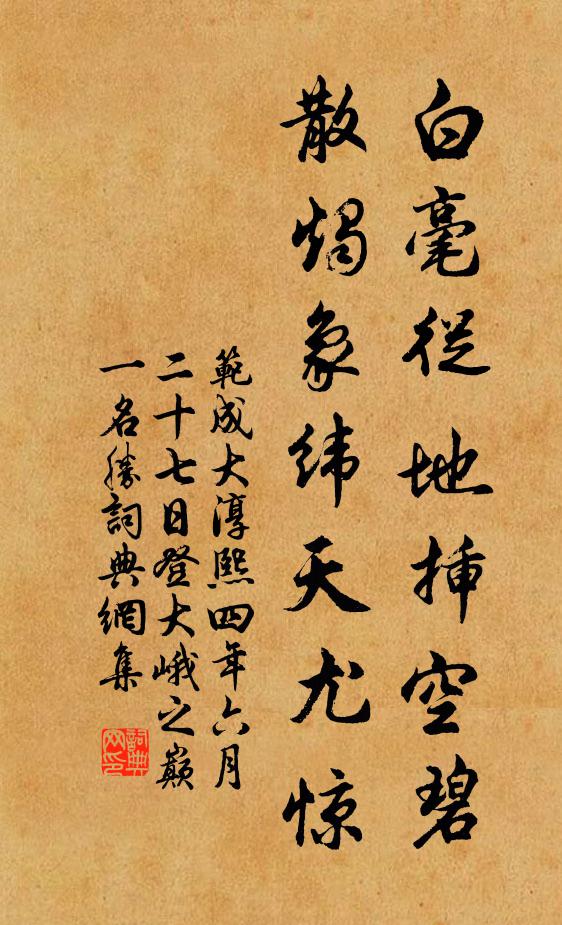 白毫從地插空碧
散燭象緯天尤惊
範成大淳熙四年六月
二十七日登大峨之巔
一名勝詞典網集
詞典
网印